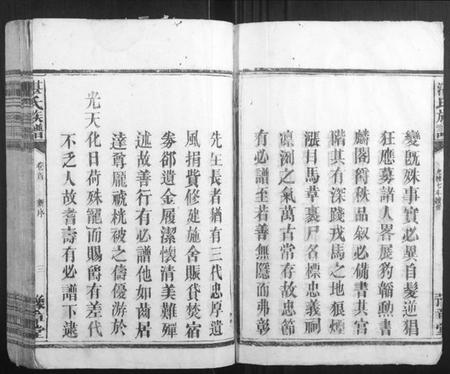 變既殊事實必異自髮逆猖
狂應募諸人畧展豹韜勲書
麟閣爵秩品叙必備書其官
階其有深踐戎馬之地狼煙
漲日馬革裹尸名標忠義祠
凛冽之氣萬古常存故忠節
有必譜至若善無隱而弗彰
先在長者猶有三代忠厚遺
風捐貲修建施舍賑貸焚宿
劵郤遺金履潔懷清美難殫
述故善行有必譜他如齒居
逹尊龎眊桃被之儔優游於
光天化日荷殊寵而賜爵有差代
不乏人故耆壽有必譜下逮
氏族譜
卷首
新序
三